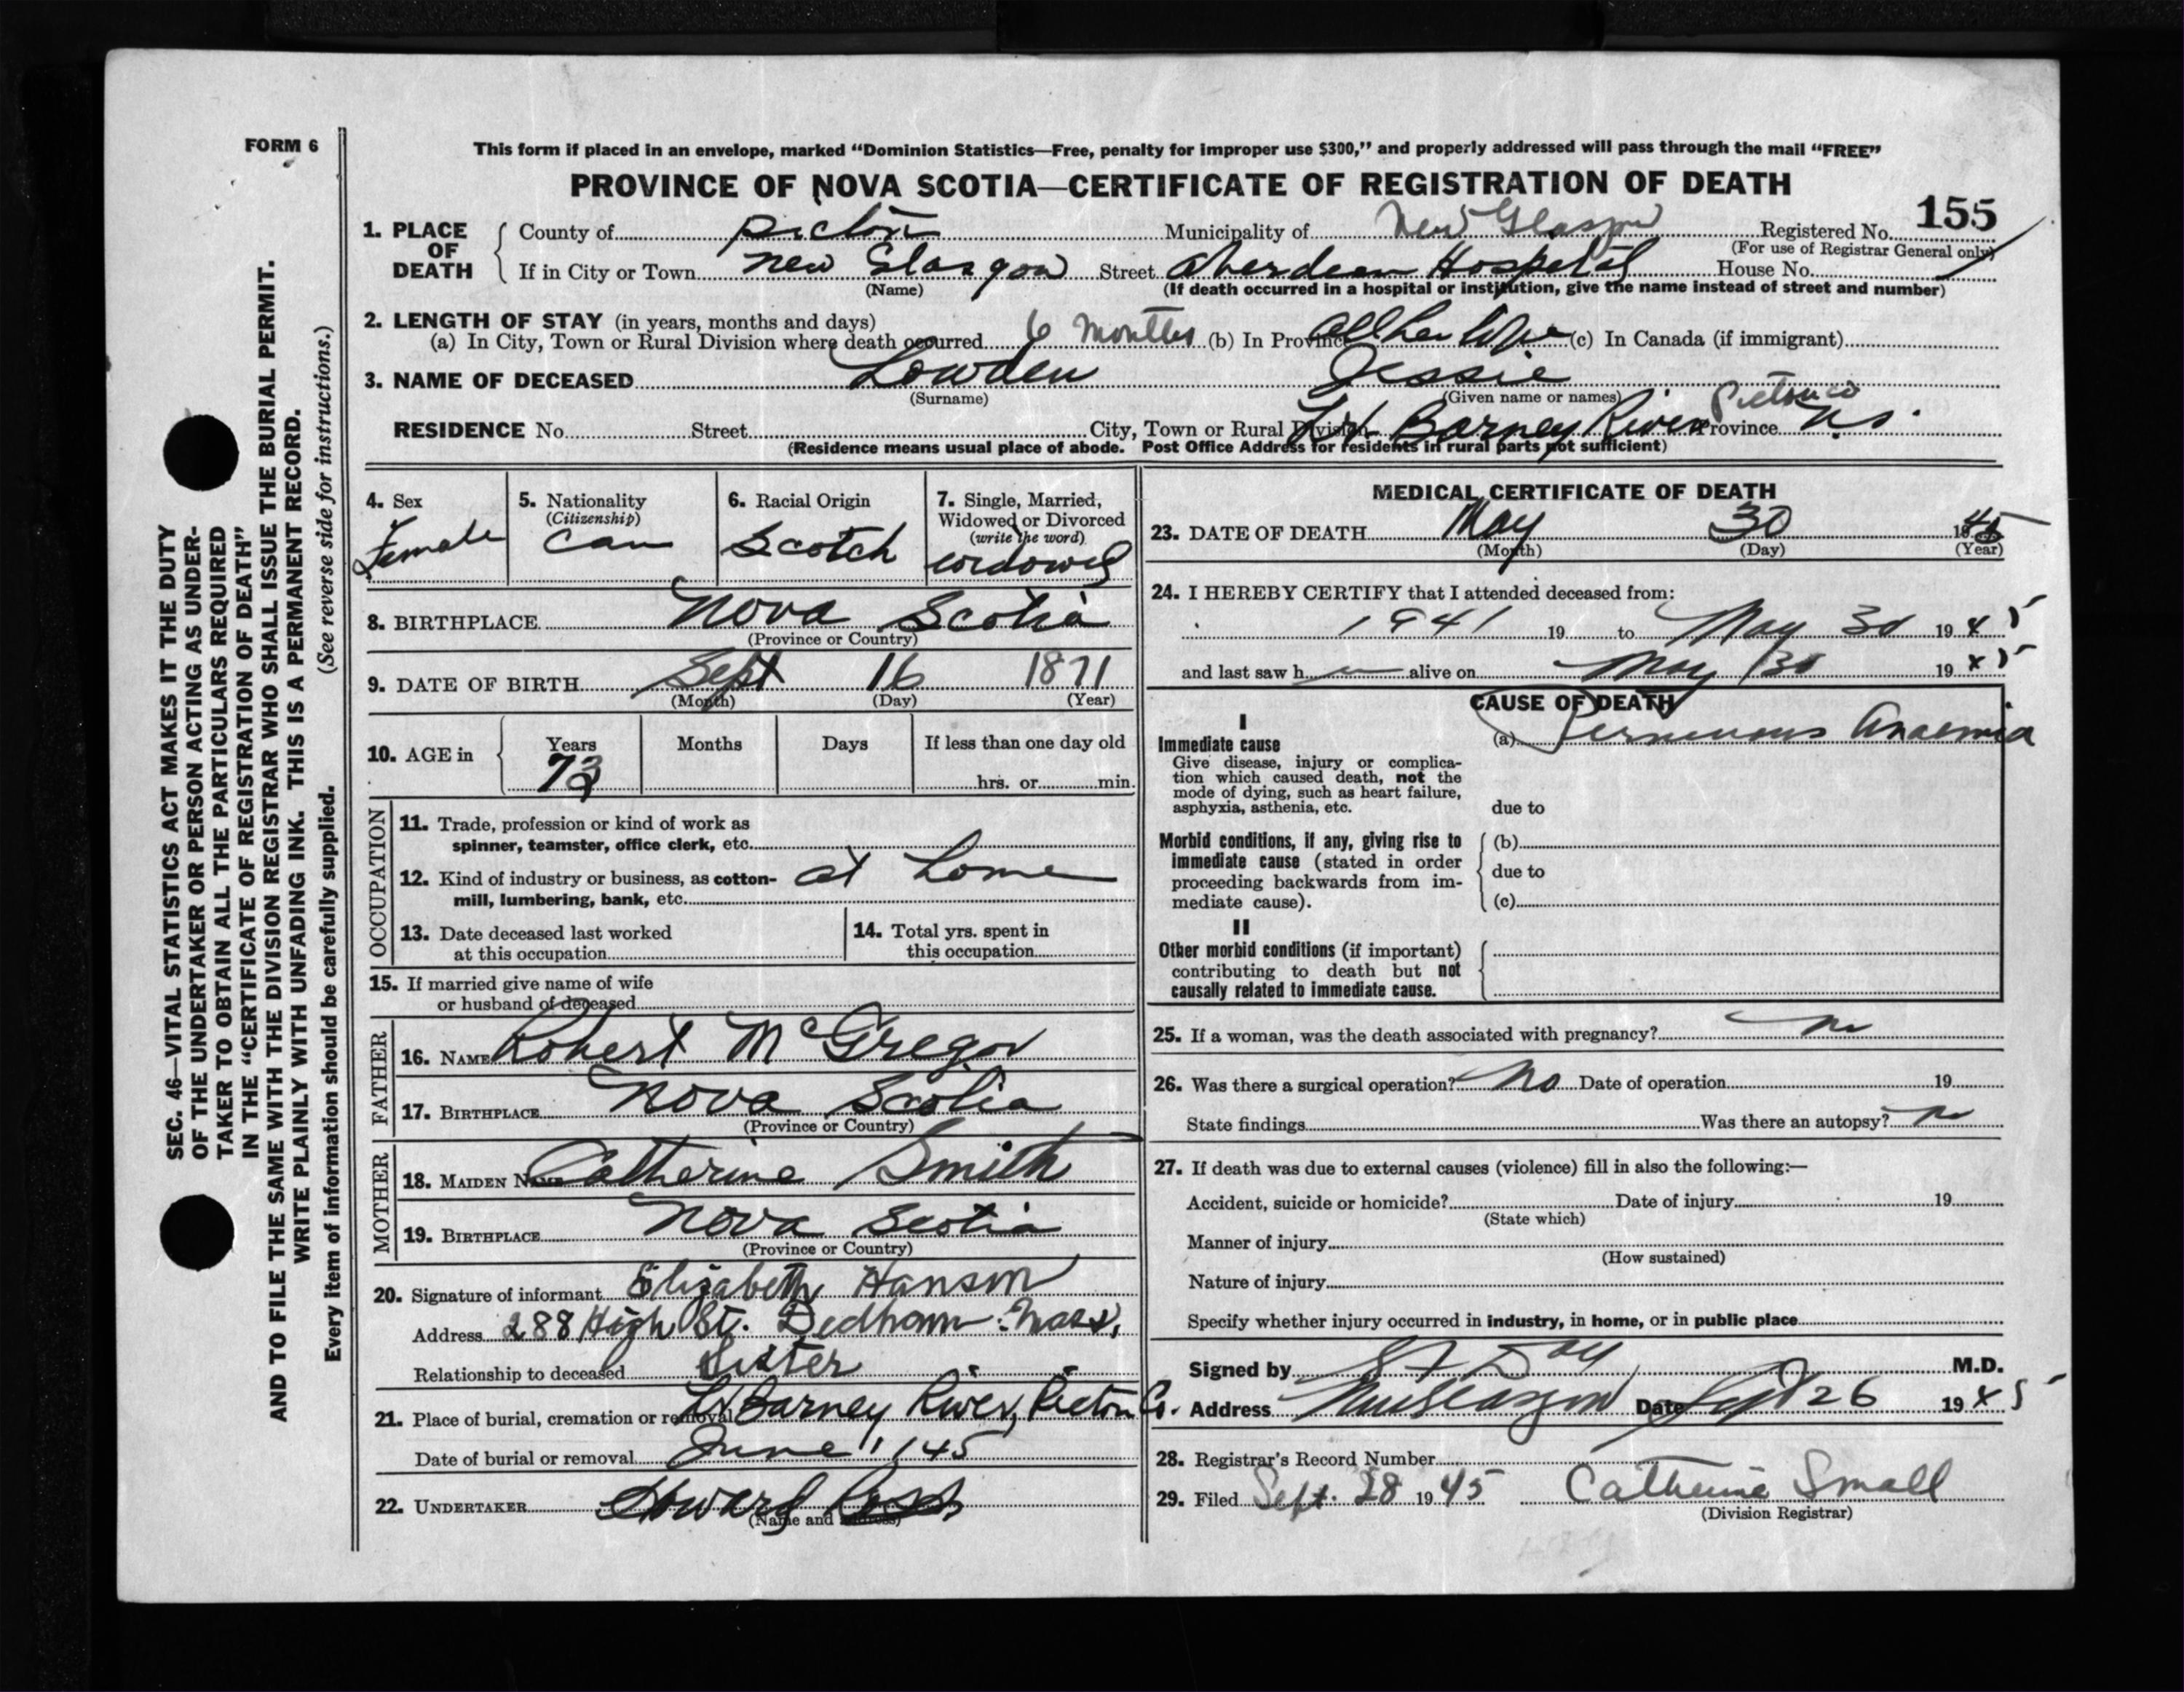 FORM 6
This form if placed in an envelope, marked “Dominion Statistics—Free, penalty for improper use $300,” and properly addressed will pass through the mail “FREE”
PROVINCE OF NOVA SCOTIA—CERTIFICATE OF REGISTRATION OF DEATH
155
1. PLACE OF DEATH { County of Pictou Municipality of New Glasgow Registered No.
(For use of Registrar General only)
If in City or Town New Glasgow Street Aberdeen Hospital House No.
(Name) (If death occurred in a hospital or institution, give the name instead of street and number)
2. LENGTH OF STAY (in years, months and days)
(a) In City, Town or Rural Division where death occurred 6 months (b) In Province all her life (c) In Canada (if immigrant)
3. NAME OF DECEASED Lowden Jessie
(Surname) (Given name or names)
Pictou Co
RESIDENCE No. Street City, Town or Rural Division Lr Barney River Province N.S.
(Residence means usual place of abode. Post Office Address for residents in rural parts not sufficient)
4. Sex
Female
5. Nationality
(Citizenship)
Can
6. Racial Origin
Scotch
7. Single, Married,
Widowed or Divorced
(write the word)
widowed
8. BIRTHPLACE Nova Scotia
(Province or Country)
9. DATE OF BIRTH Sept 16 1871
(Month) (Day) (Year)
10. AGE in { Years Months Days If less than one day old
73 hrs. or min.
OCCUPATION
11. Trade, profession or kind of work as
spinner, teamster, office clerk, etc.
12. Kind of industry or business, as cotton- at home
mill, lumbering, bank, etc.
13. Date deceased last worked
at this occupation
14. Total yrs. spent in
this occupation
15. If married give name of wife
or husband of deceased
FATHER
16. NAME Robert McGregor
17. BIRTHPLACE Nova Scotia
(Province or Country)
MOTHER
18. MAIDEN NAME Catherine Smith
19. BIRTHPLACE Nova Scotia
(Province or Country)
20. Signature of informant Elizabeth Hanson
Address 288 High St. Dedham. Mass,
Relationship to deceased Sister
21. Place of burial, cremation or removal Lr Barney River, Pictou Co.
Date of burial or removal June 1, 45
22. UNDERTAKER Howard
(Name and address)
MEDICAL CERTIFICATE OF DEATH
23. DATE OF DEATH May 30 1945
(Month) (Day) (Year)
24. I HEREBY CERTIFY that I attended deceased from:
1941 19 to May 30 1945
and last saw h alive on May 30 1945
CAUSE OF DEATH
I
Immediate cause (a) Pernicious Anaemia
Give disease, injury or complica-
tion which caused death, not the
mode of dying, such as heart failure,
asphyxia, asthenia, etc. due to
Morbid conditions, if any, giving rise to (b)
immediate cause (stated in order
proceeding backwards from im- due to
mediate cause). (c)
II
Other morbid conditions (if important)
contributing to death but not
causally related to immediate cause.
25. If a woman, was the death associated with pregnancy? no
26. Was there a surgical operation? No Date of operation 19
State findings Was there an autopsy? no
27. If death was due to external causes (violence) fill in also the following:—
Accident, suicide or homicide? Date of injury 19
(State which)
Manner of injury
(How sustained)
Nature of injury
Specify whether injury occurred in industry, in home, or in public place
Signed by Day M.D.
Address New Glasgow Date Sept 26 1945
28. Registrar's Record Number
29. Filed Sept. 28 1945 Catherine Small
(Division Registrar)
SEC. 46—VITAL STATISTICS ACT MAKES IT THE DUTY
OF THE UNDERTAKER OR PERSON ACTING AS UNDER-
TAKER TO OBTAIN ALL THE PARTICULARS REQUIRED
IN THE “CERTIFICATE OF REGISTRATION OF DEATH”
AND TO FILE THE SAME WITH THE DIVISION REGISTRAR WHO SHALL ISSUE THE BURIAL PERMIT.
WRITE PLAINLY WITH UNFADING INK. THIS IS A PERMANENT RECORD.
Every item of information should be carefully supplied. (See reverse side for instructions.)